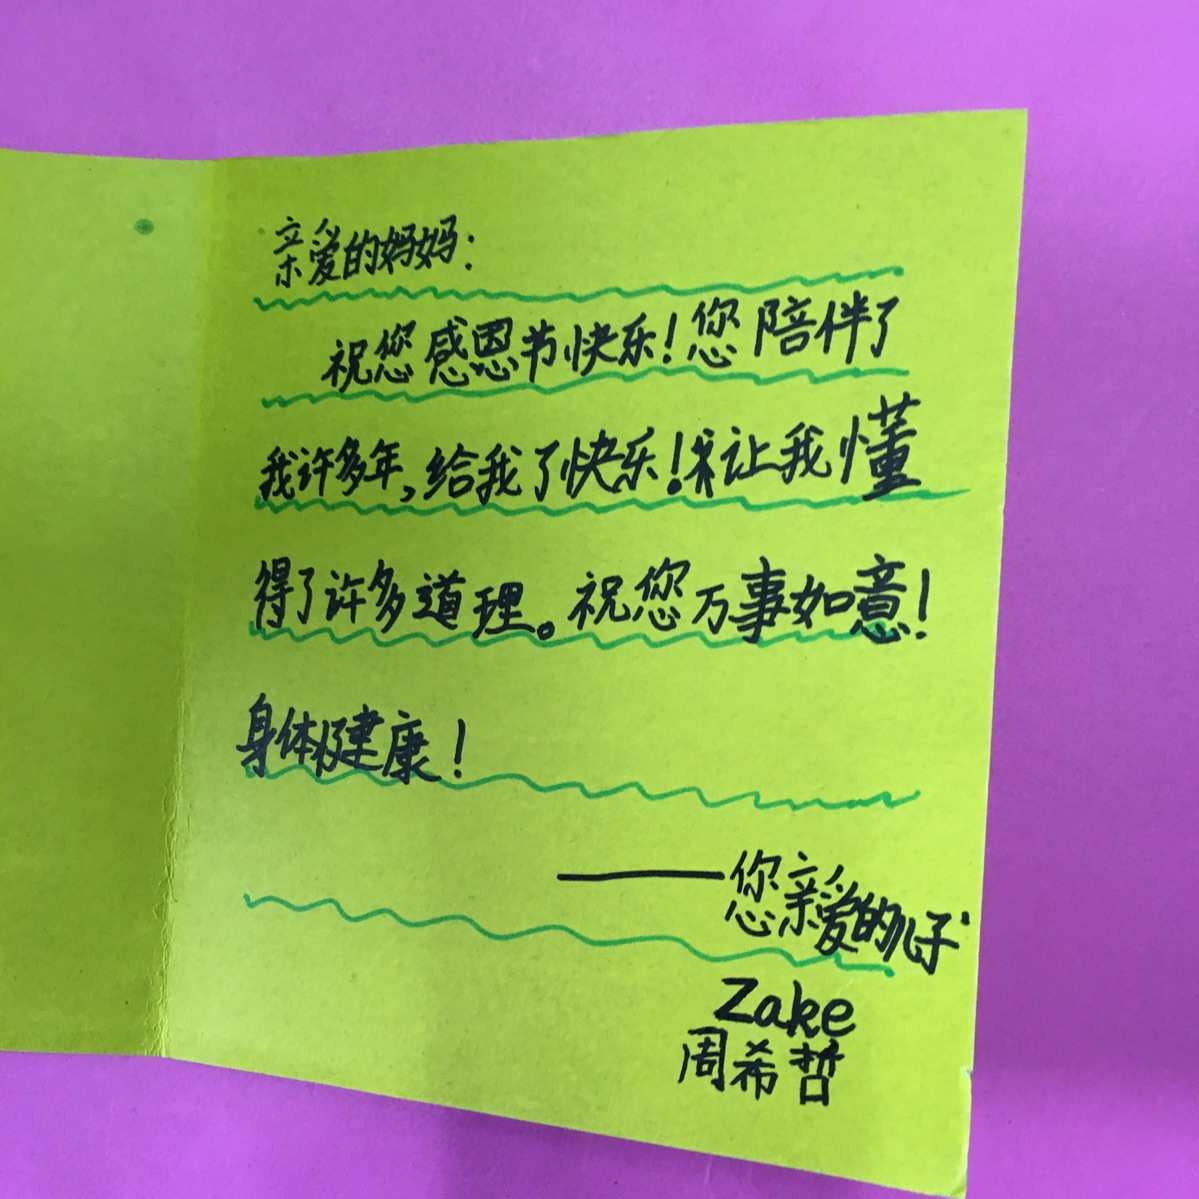 亲爱的妈妈:
祝您感恩节快乐!您陪伴了
我许多年,给我了快乐!让我懂
得了许多道理。祝您万事如意!
身体健康!
——您亲爱的儿子
Zake
周希哲